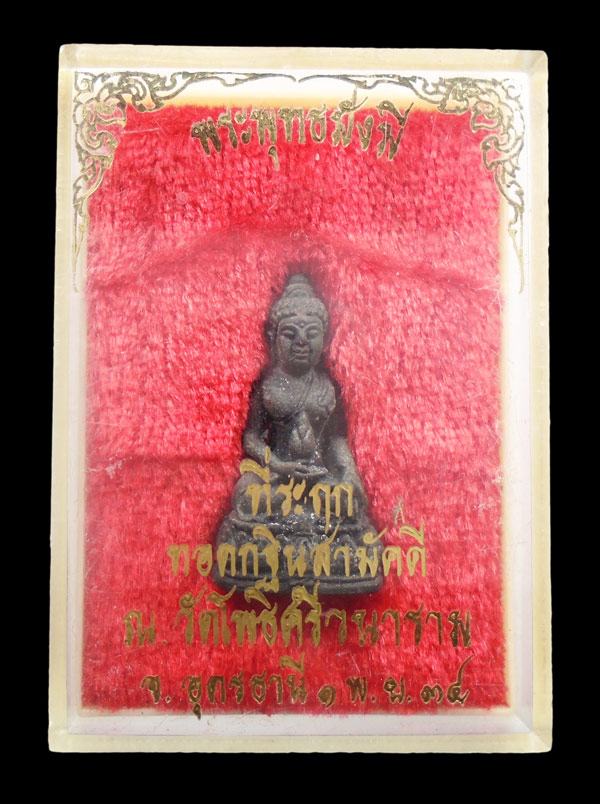 พระพุทธมั่งมี
ที่ระฤก
ทอดกฐินสามัคคี
ณ.วัดโพธิศรีวนาราม
จ.อุดรธานี ๑ พ.ย.๓๔